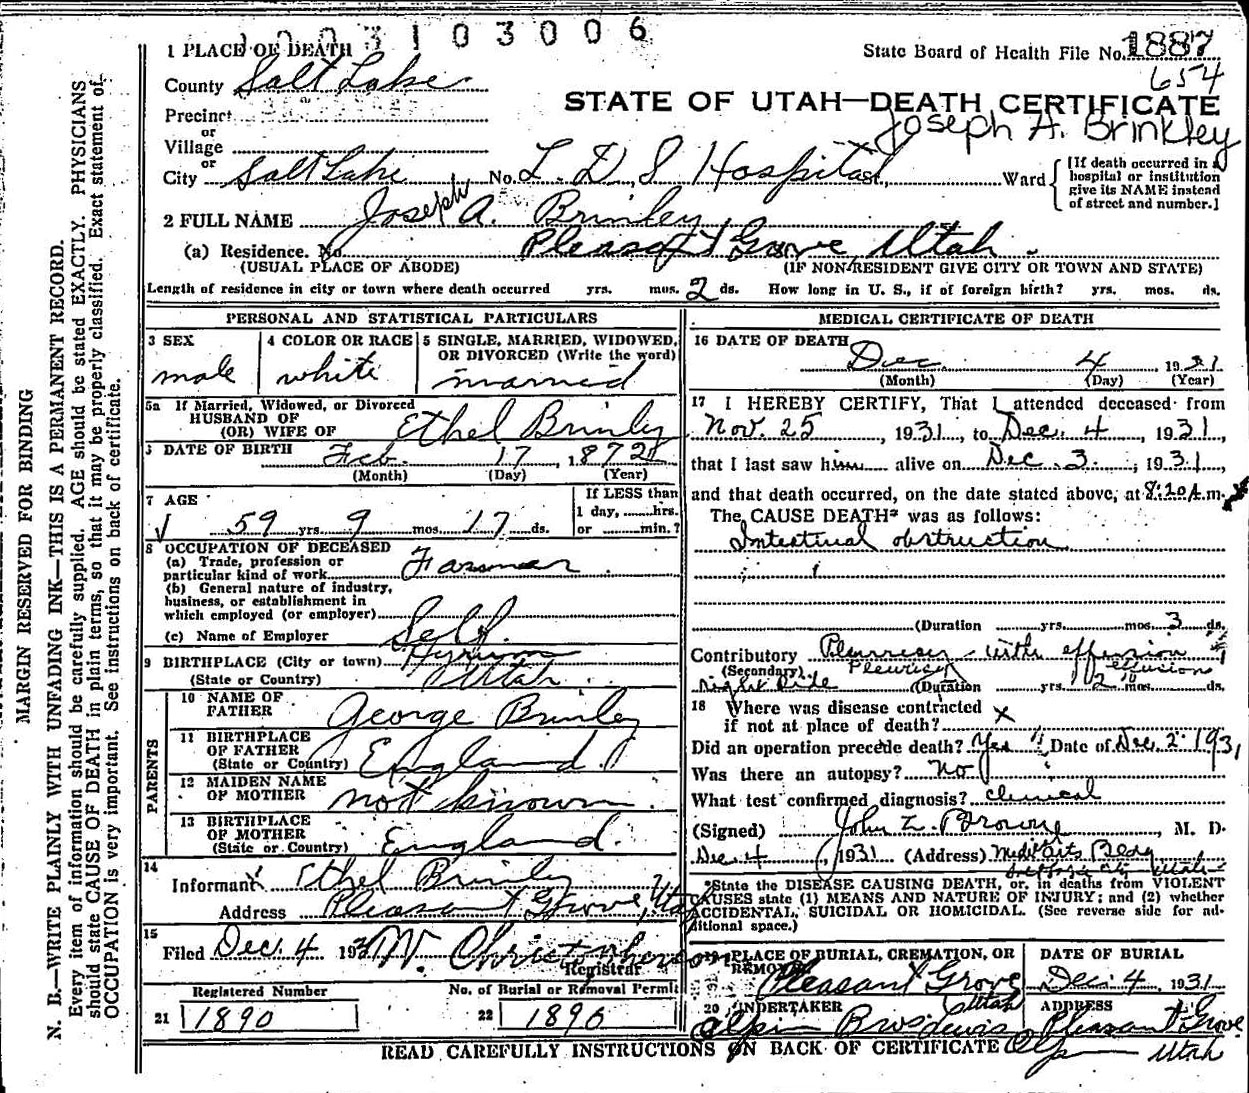 3103006
1 PLACE OF DEATH
State Board of Health File No. 1887
654
County Salt Lake
STATE OF UTAH—DEATH CERTIFICATE
Precinct
Joseph A. Brinkley
or
Village
or
City Salt Lake No. L. D. S Hospital St., Ward
[If death occurred in a hospital or institution give its NAME instead of street and number.]
2 FULL NAME Joseph A. Brinley
(a) Residence. No. Pleasant Grove, Utah.
(USUAL PLACE OF ABODE) (IF NON-RESIDENT GIVE CITY OR TOWN AND STATE)
Length of residence in city or town where death occurred yrs. mos. 2 ds. How long in U. S., if of foreign birth? yrs. mos. ds.
PERSONAL AND STATISTICAL PARTICULARS
3 SEX male
4 COLOR OR RACE white
5 SINGLE, MARRIED, WIDOWED, OR DIVORCED (Write the word) married
5a If Married, Widowed, or Divorced
HUSBAND OF
(OR) WIFE OF Ethel Brinley
DATE OF BIRTH Feb. 17, 1872
(Month) (Day) (Year)
7 AGE 59 yrs. 9 mos. 17 ds.
If LESS than
1 day, hrs.
or min.?
8 OCCUPATION OF DECEASED
(a) Trade, profession or
particular kind of work Farmer
(b) General nature of industry,
business, or establishment in
which employed (or employer)
(c) Name of Employer Self.
9 BIRTHPLACE (City or town) Hyrum
(State or Country) Utah.
PARENTS
10 NAME OF FATHER George Brinley
11 BIRTHPLACE OF FATHER
(State or Country) England.
12 MAIDEN NAME OF MOTHER not known.
13 BIRTHPLACE OF MOTHER
(State or Country) England.
14
Informant Ethel Brinley
Address Pleasant Grove, Uta
15
Filed Dec. 4 193 W. Christopherson
Registrar
Registered Number
21 1890
No. of Burial or Removal Permit
22 1890
MEDICAL CERTIFICATE OF DEATH
16 DATE OF DEATH Dec. 4 1931
(Month) (Day) (Year)
17 I HEREBY CERTIFY, That I attended deceased from
Nov. 25, 1931, to Dec. 4, 1931,
that I last saw him alive on Dec. 3., 1931,
and that death occurred, on the date stated above, at 8:20 A.m.
The CAUSE DEATH* was as follows:
Intestinal obstruction
(Duration yrs. mos. 3 ds.
Contributory Pleurisy with effusion
(Secondary) Pleurisy effusion
right side (Duration yrs. 2 mos. ds.
18 Where was disease contracted
if not at place of death? x
Did an operation precede death? Yes Date of Dec. 2. 1931
Was there an autopsy? No
What test confirmed diagnosis? Clinical
(Signed) John Z. Brown, M. D.
Dec 4, 1931 (Address) Bldg
Utah
*State the DISEASE CAUSING DEATH, or, in deaths from VIOLENT
CAUSES state (1) MEANS AND NATURE OF INJURY; and (2) whether
ACCIDENTAL, SUICIDAL OR HOMICIDAL. (See reverse side for ad-
ditional space.)
19 PLACE OF BURIAL, CREMATION, OR REMOVAL Pleasant Grove Utah
DATE OF BURIAL Dec. 4, 1931
20 UNDERTAKER Bros.
ADDRESS Pleasant Grove Utah
READ CAREFULLY INSTRUCTIONS ON BACK OF CERTIFICATE
MARGIN RESERVED FOR BINDING
N. B.—WRITE PLAINLY WITH UNFADING INK—THIS IS A PERMANENT RECORD.
Every item of information should be carefully supplied. AGE should be stated EXACTLY. PHYSICIANS
should state CAUSE OF DEATH in plain terms, so that it may be properly classified. Exact statement of
OCCUPATION is very important. See instructions on back of certificate.